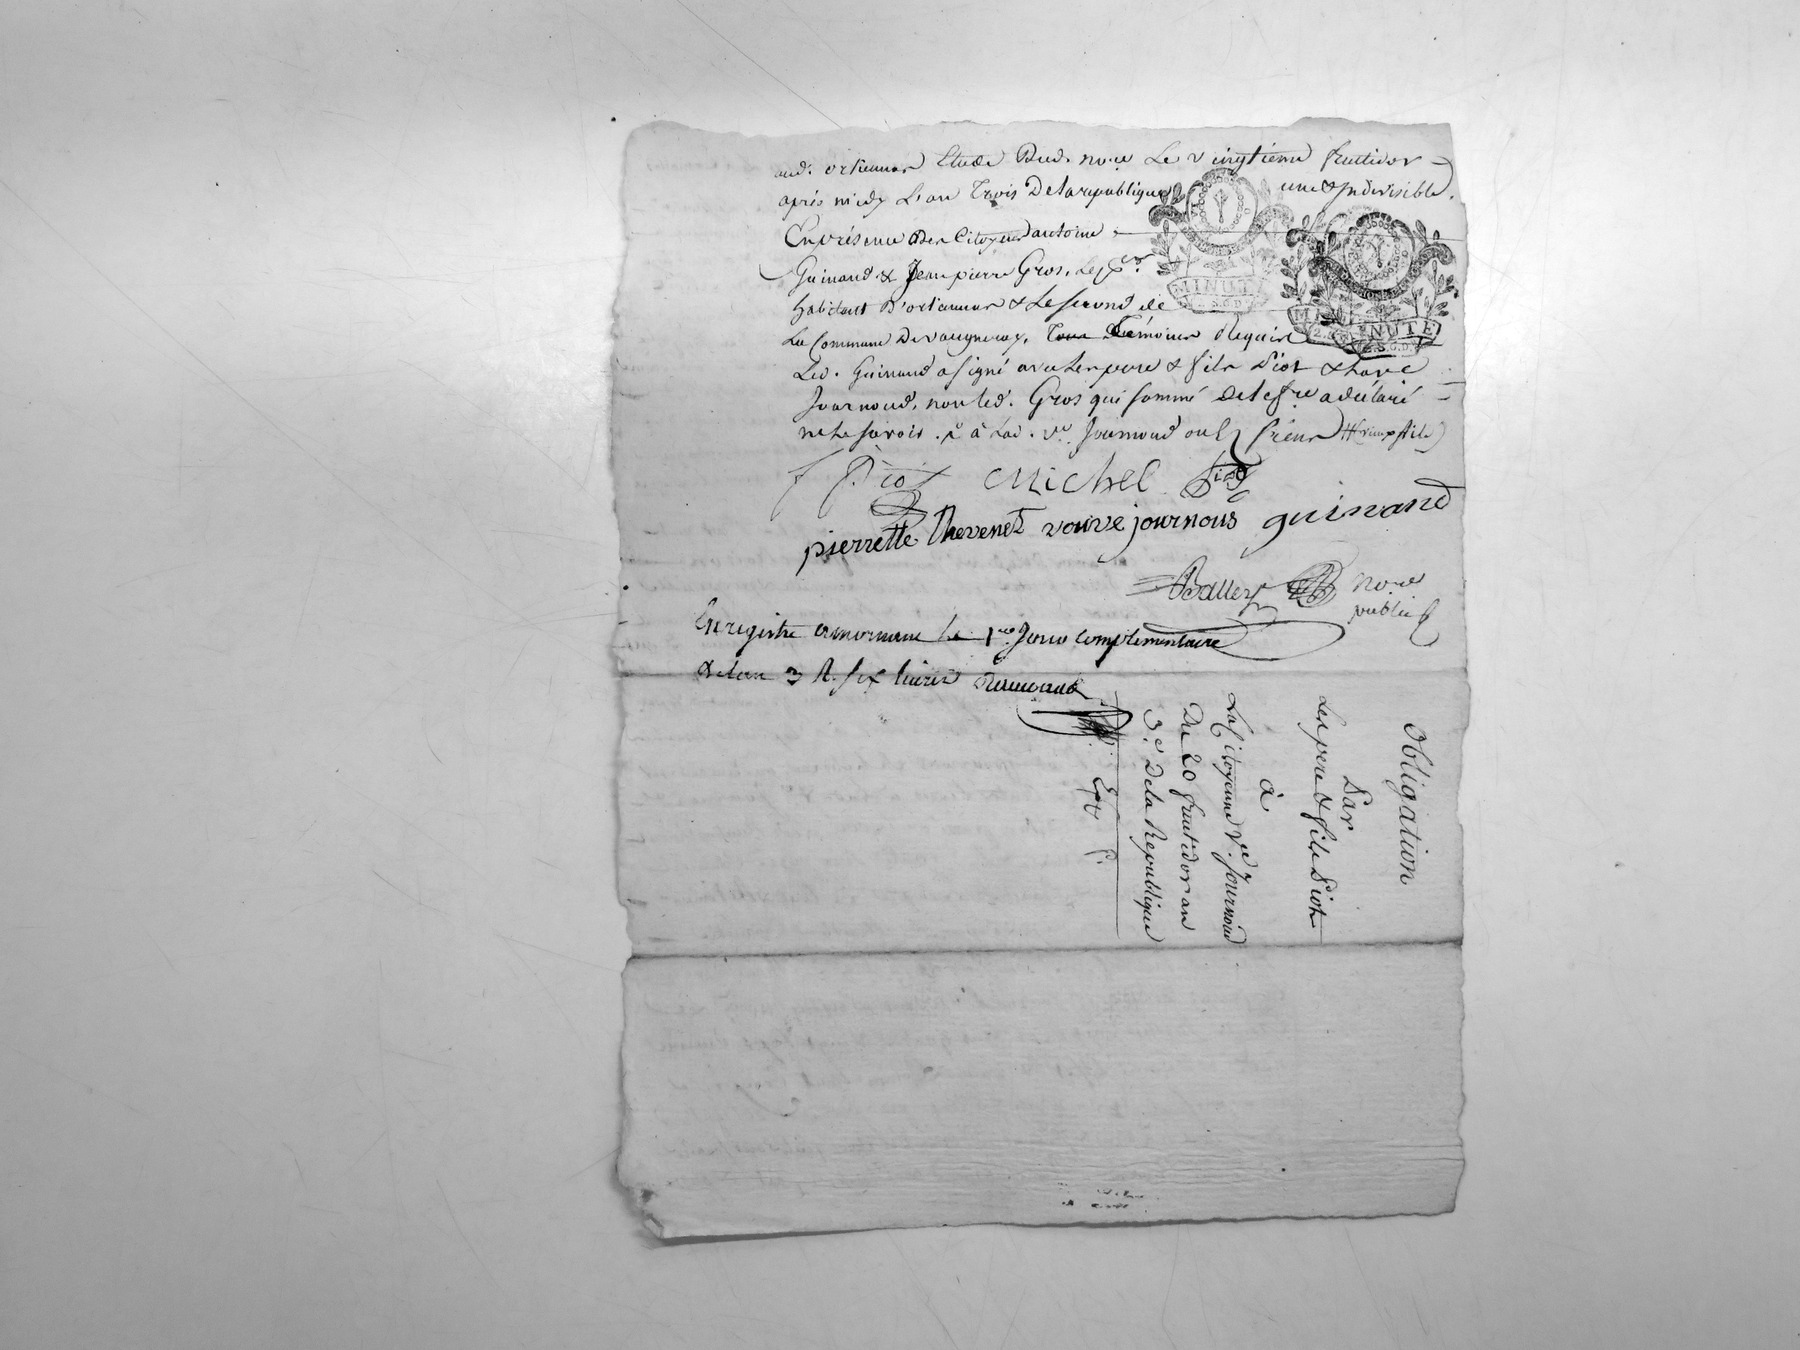 aud. ortiennas Etude Dud. no.re Le vingtieme fructidor
après midy L'an Trois De la republique une & Indivisible.
En présence Des Citoyens antoine
Guinand & Jean pierre Gros, Le p.er
habitant D'ortiennas & Le second de
La Commune De vaugneray, Temoins Requis
Led. Guinand a signé avec Les pere & fils Piot & la ve
Journoud, non led. Gros qui sommé De le fre a déclaré
ne le savoir. à Lad. ve. Journoud ou
Piot Michel Piot
pierrette thevenet veuve journous guinand
Balley no.re
public
Enregistré le 1.er Jour complémentaire
de lan 3 R. six livres
Obligation
Par
Les pere & fils Piot
à
La Citoyenne ve. Journoud
Du 20 fructidor an
3.e De la Republique
Exp
MINUTE
MINUTE